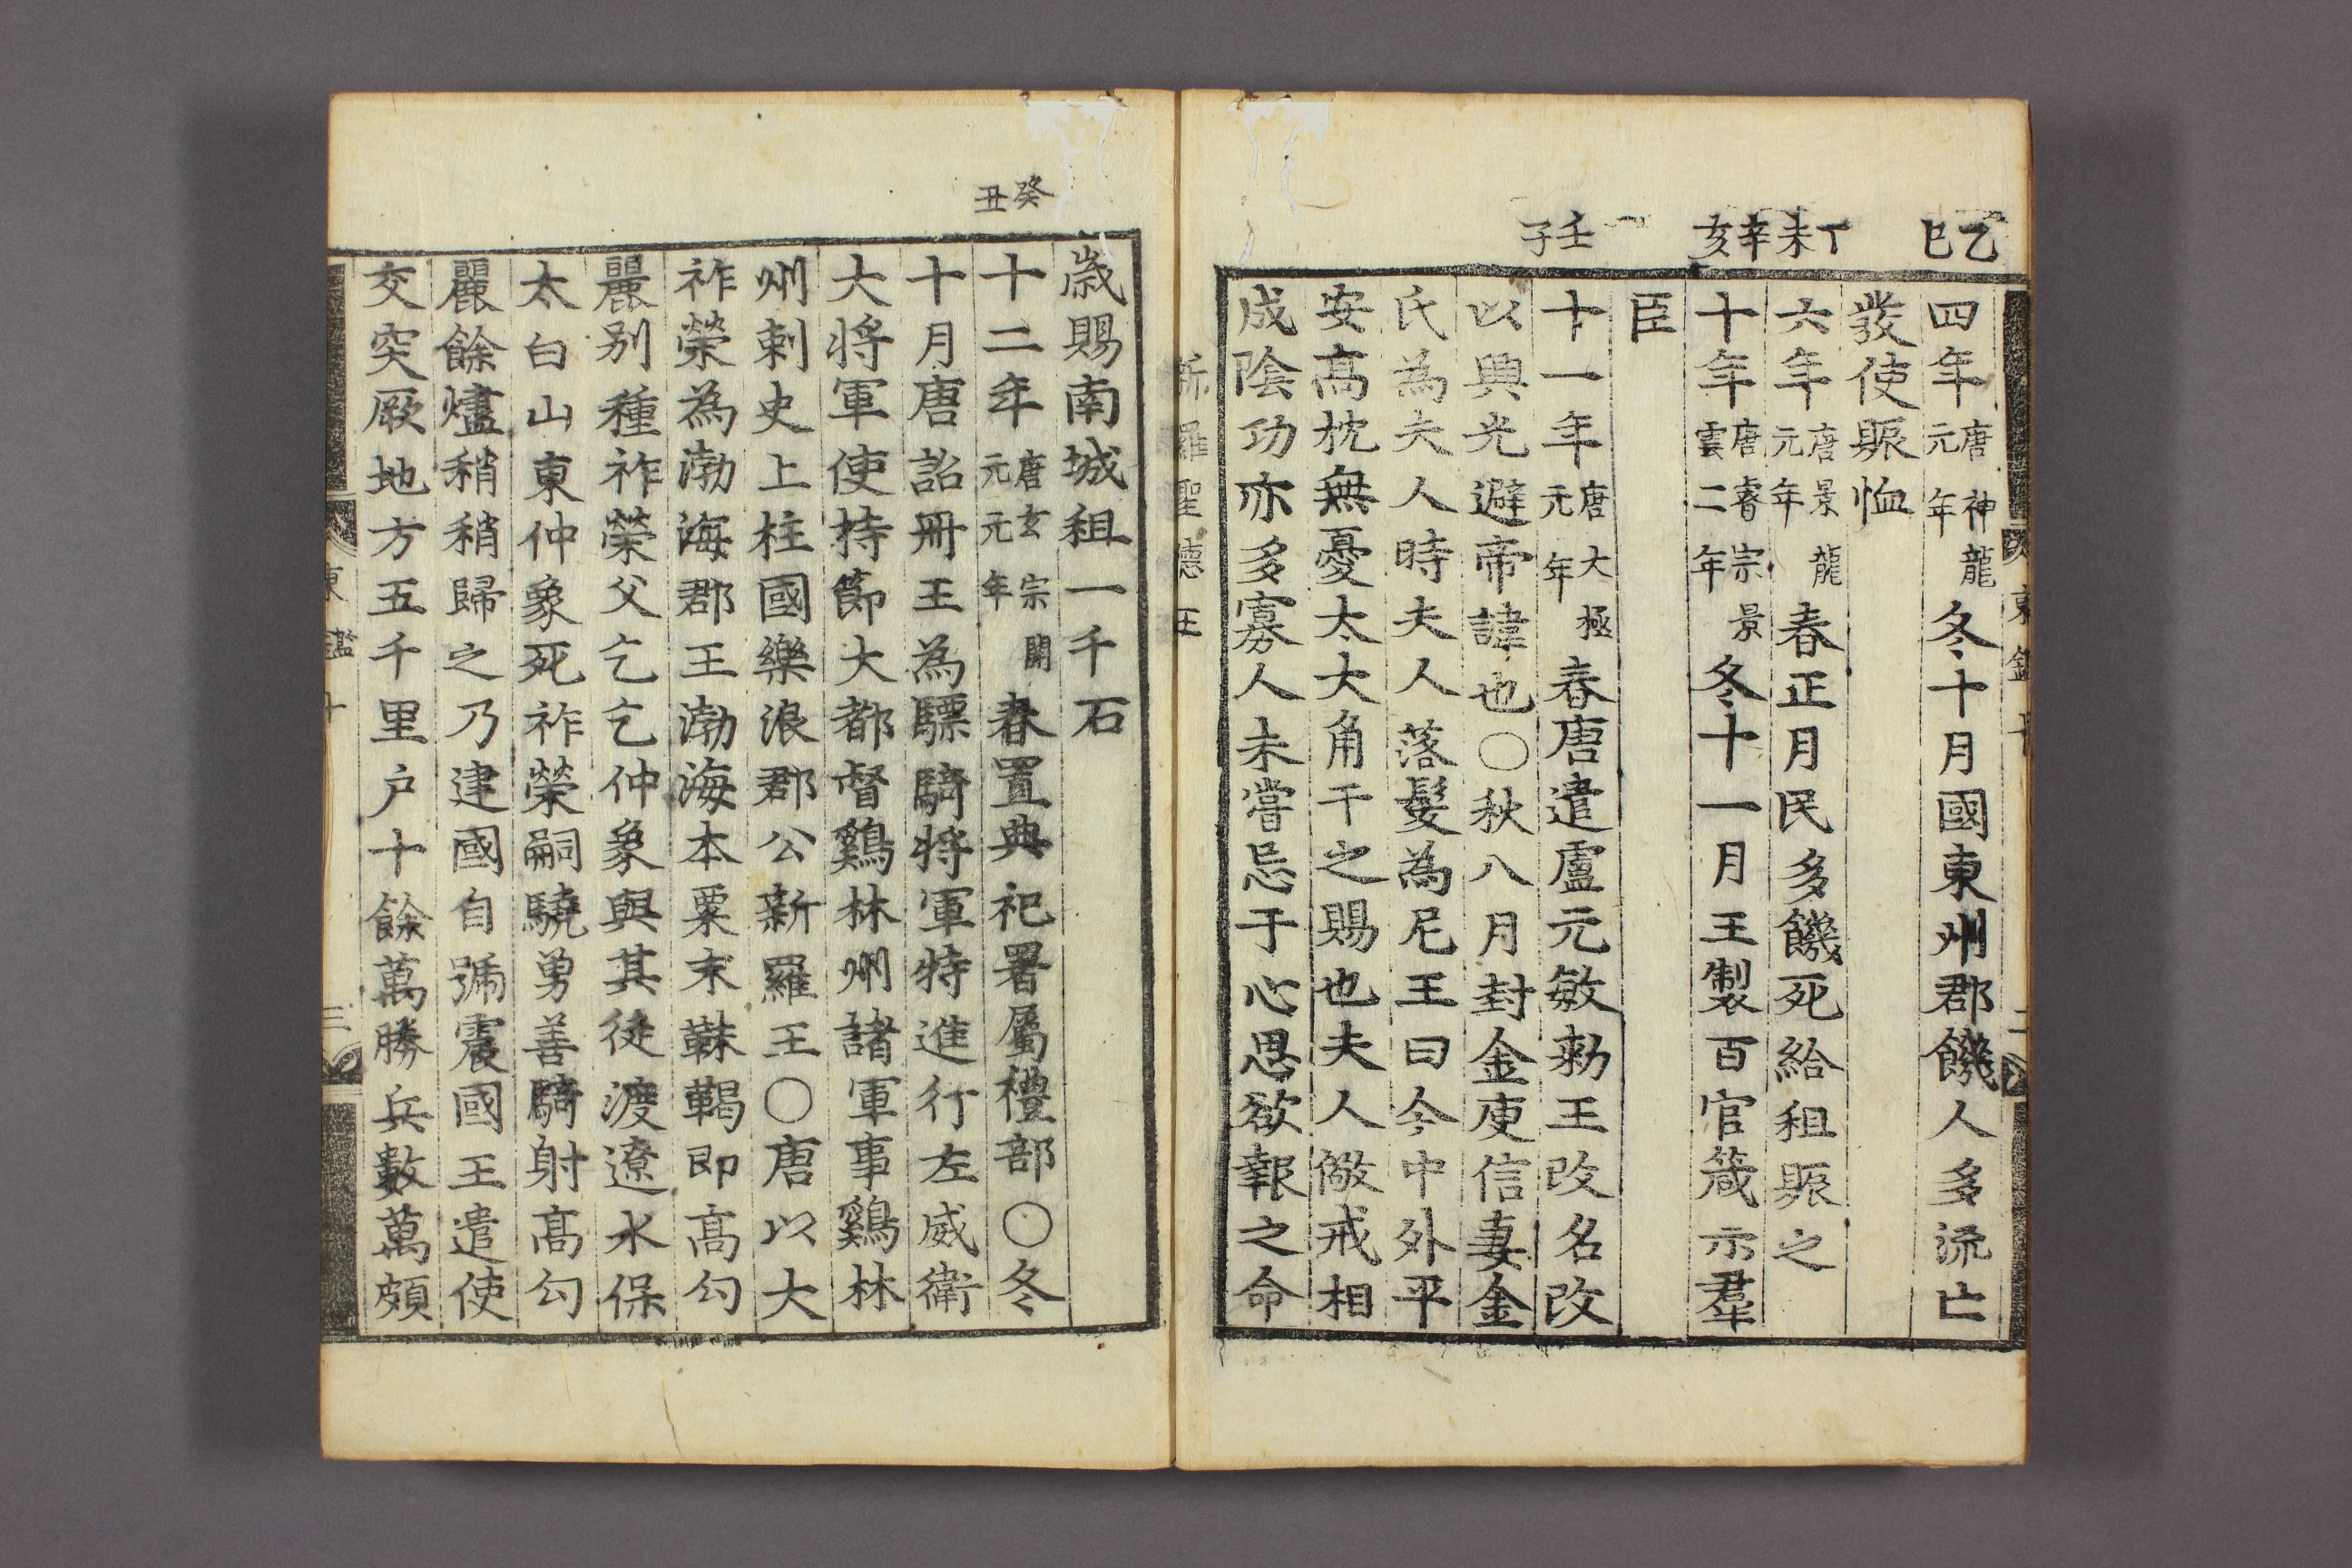 乙巳
丁未
辛亥
壬子
四年唐神龍元年冬十月國東州郡饑人多流亡
發使賑恤
六年唐景龍元年春正月民多饑死給租賑之
十年唐睿宗景雲二年冬十一月王製百官箴示羣
臣
十一年唐大極元年春唐遣盧元敏勑王改名改
以興光避帝諱也○秋八月封金庾信妻金
氏為夫人時夫人落髮為尼王曰今中外平
安高枕無憂太大角干之賜也夫人儆戒相
成陰功亦多寡人未嘗忘于心思欲報之命
新羅聖德王
癸丑
歲賜南城租一千石
十二年唐玄宗開元元年春置典祀署屬禮部○冬
十月唐詔冊王為驃騎將軍特進行左威衛
大將軍使持節大都督鷄林州諸軍事鷄林
州刺史上柱國樂浪郡公新羅王○唐以大
祚榮為渤海郡王渤海本粟末靺鞨即高勾
麗別種祚榮父乞乞仲象與其徒渡遼水保
太白山東仲象死祚榮嗣驍勇善騎射高勾
麗餘燼稍稍歸之乃建國自號震國王遣使
交突厥地方五千里戶十餘萬勝兵數萬頗
東鑑十
三